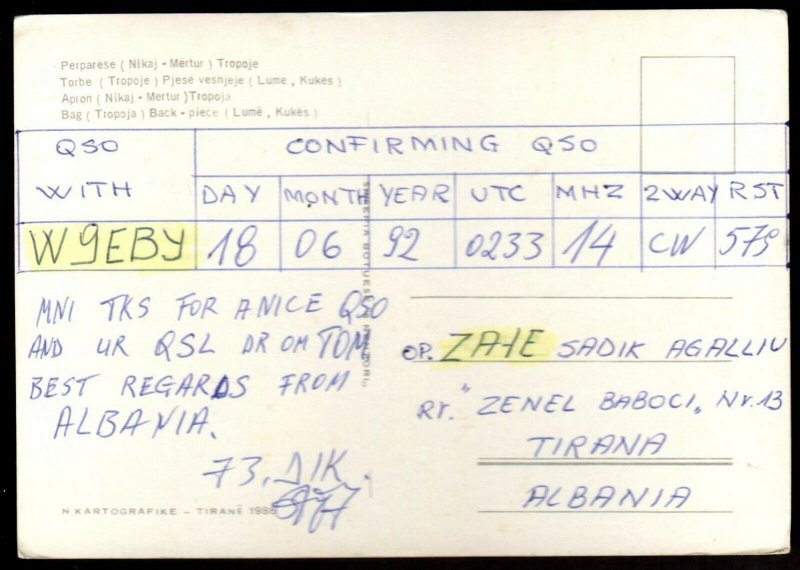 Perparese ( Nikaj - Mërtur ) Tropoje
Torbe ( Tropoje ) Pjese vesnjeje ( Lume , Kukes )
Apron ( Nikaj - Mertur ) Tropoja
Bag ( Tropoja ) Back - piece ( Lumë , Kukës )
QSO WITH
CONFIRMING QSO
DAY MONTH YEAR UTC MHZ 2WAY RST
W9EBY 18 06 92 0233 14 CW 579
MNI TKS FOR A NICE QSO
AND UR QSL DR OM TOM
BEST REGARDS FROM
ALBANIA.
73, DIK.
OP. ZA1E SADIK AGALLIU
Rr. "ZENEL BABOCI„ Nr. 13
TIRANA
ALBANIA
N KARTOGRAFIKE - TIRANË